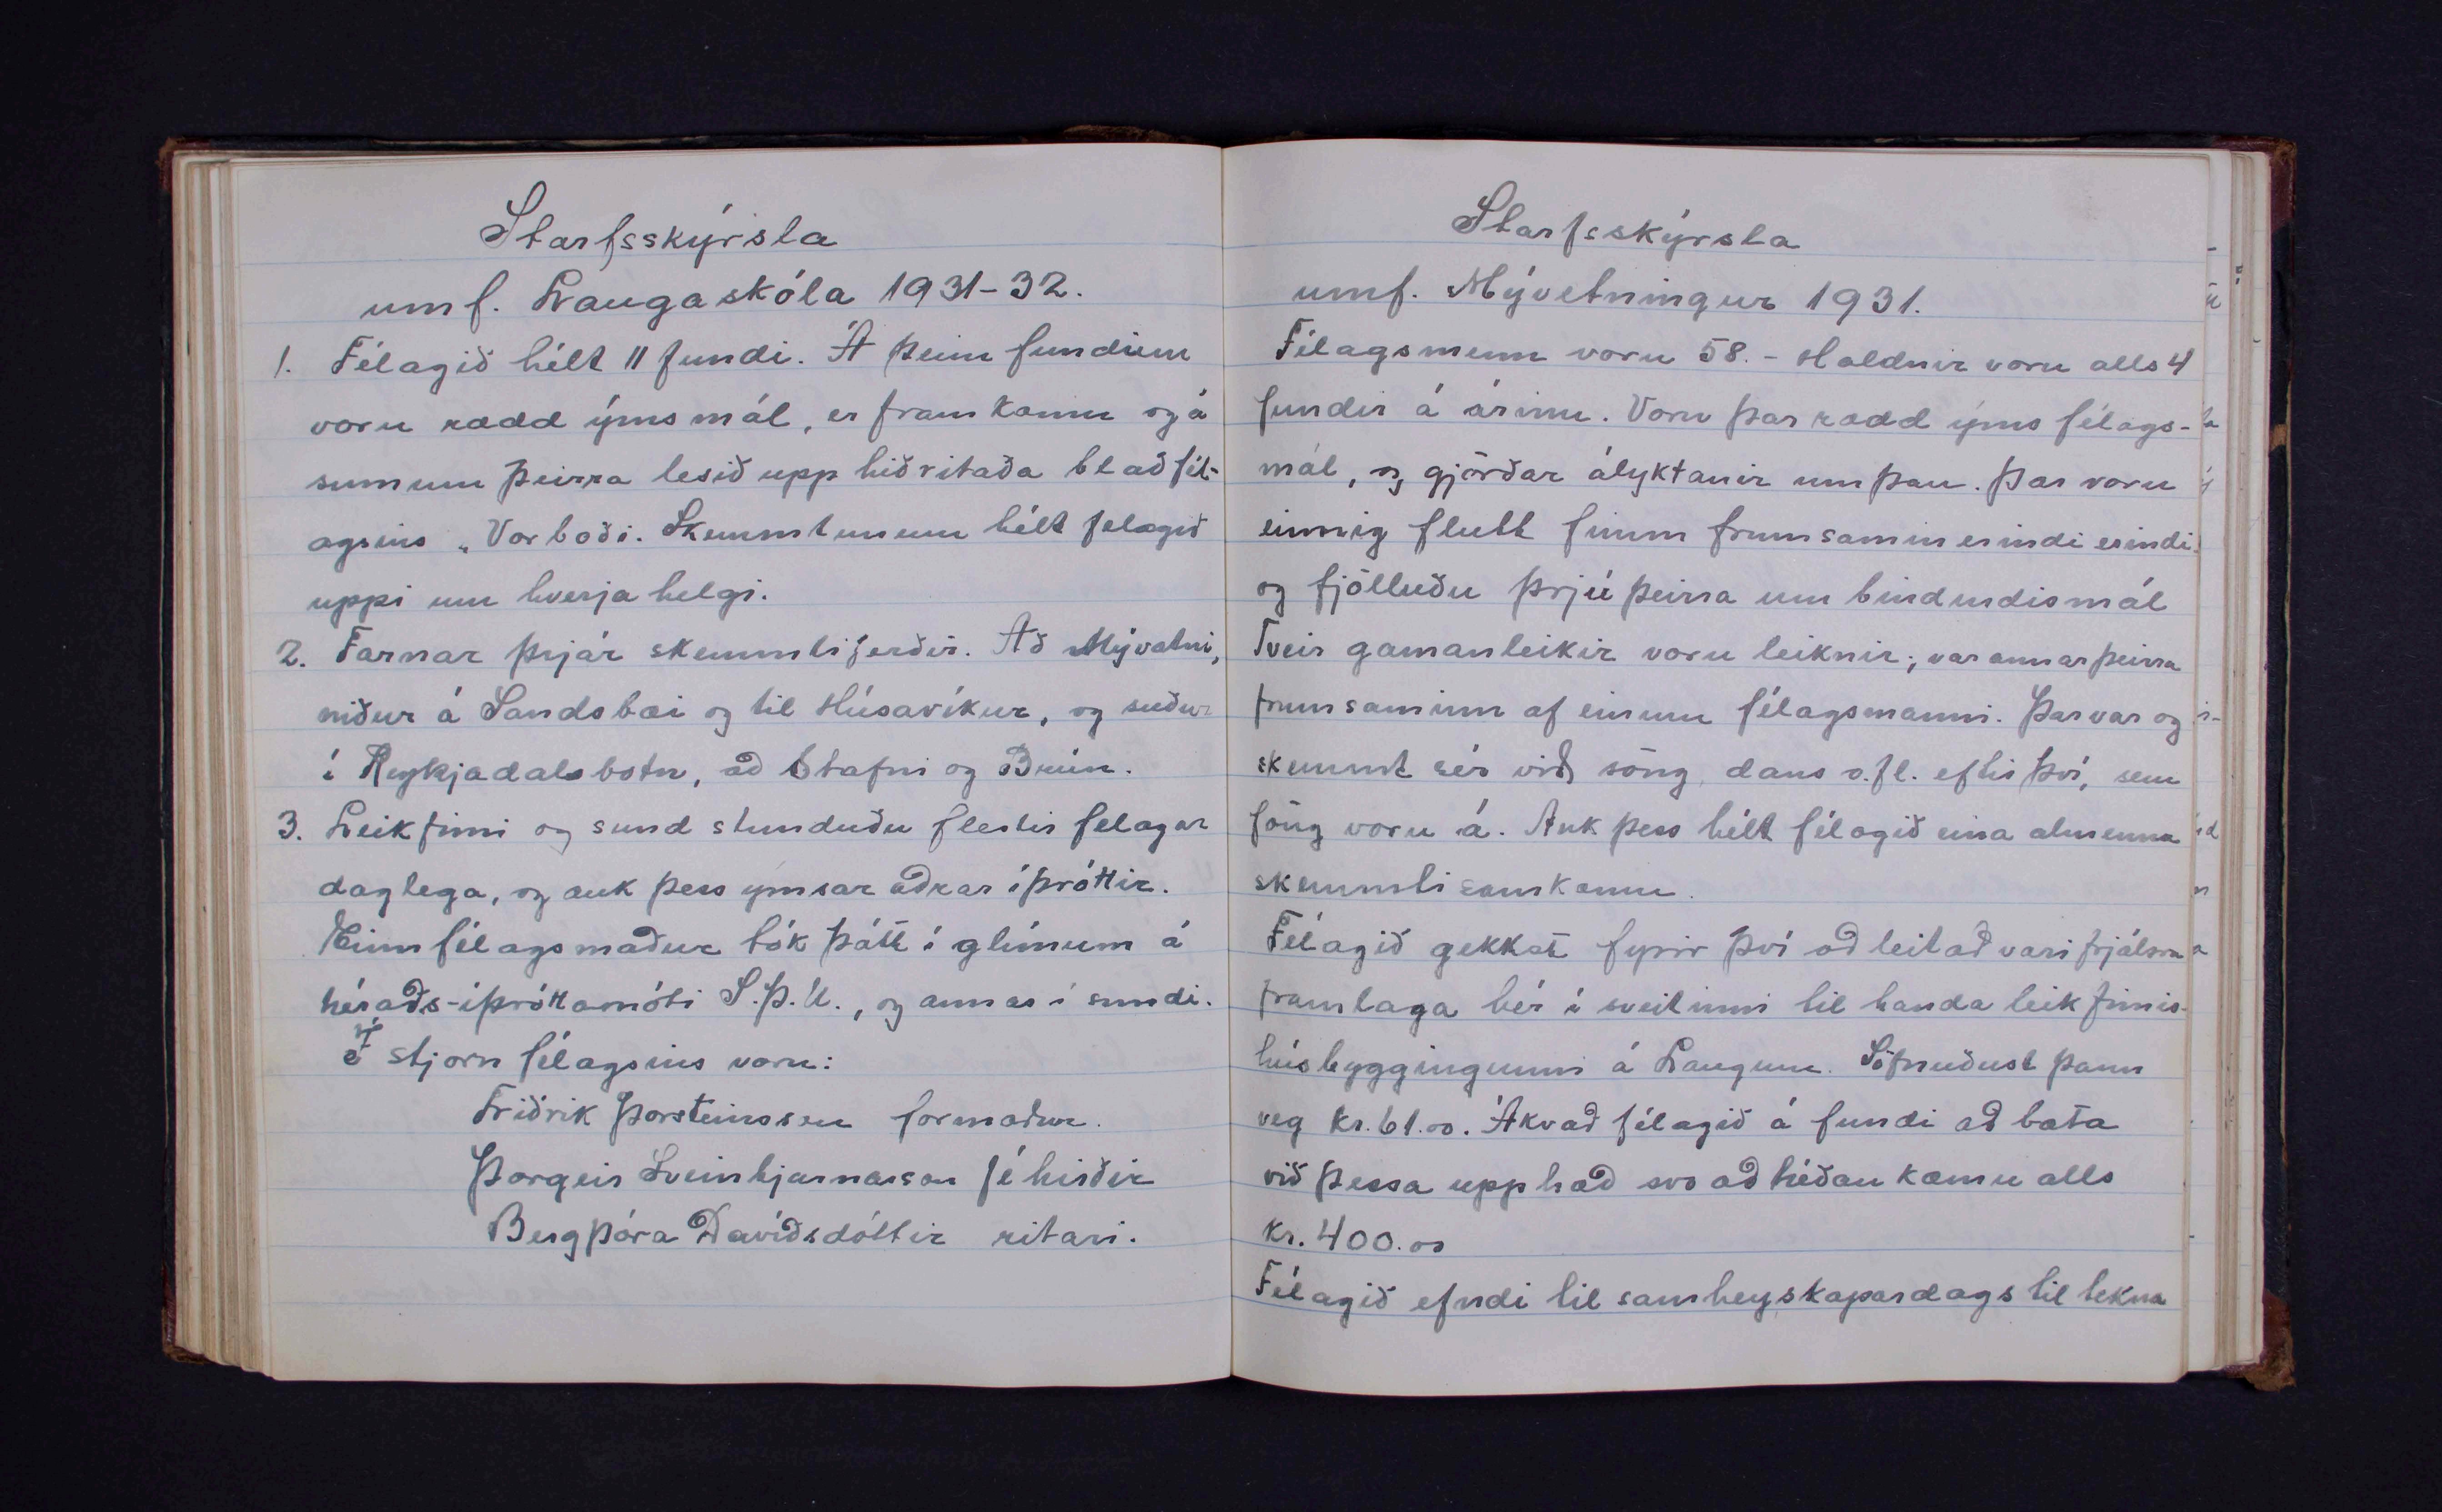 Starfsskýrsla
umf. Laugaskóla 1931-32.
1. Félagið hélt 11 fundi. Á þeim fundum
voru rædd ýms mál, er fram komu og á
sumum þeirra lesið upp hið ritaða blað fél-
agsins „Vorboði. Skemmtunum hélt felagið
uppi um hverja helgi.
2. Farnar þrjár skemmtiferðir. Að Mývatni,
niður á Sandsbæi og til Húsavíkur, og suður
í Reykjadalsbotn, að Stafni og Brún.
3. Leikfimi og sund stunduðu flestir felagar
daglega, og auk þess ýmsar aðrar íþróttir.
Einn félagsmaður tók þátt í glímum á
héraðs-íþróttamóti S.Þ.U., og annar í sundi.
Í stjorn félagsins voru:
Friðrik Þorsteinssen formaður.
Þorgeir Sveinbjarnarson féhirðir
Bergþóra Davíðsdóttir ritari.
Starfsskýrsla
umf. Mývetningur 1931.
Félagsmenn voru 58. - Haldnir voru alls 4
fundir á árinu. Voru þar rædd ýms félags-
mál, og gjörðar ályktanir um þau. Þar voru
einnig flutt fimm frumsamin erindi erindi
og fjölluðu þrjú þeirra um bindindismál
Tveir gamanleikir voru leiknir; var annar þeirra
frumsaminn af einum félagsmanni. Þar var og
skemmt sér við söng, dans o.fl. eftir því, sem
föng voru á. Auk þess hélt félagið eina almenna
skemmtisamkomu.
Félagið gekkst fyrir því að leitað væri frjálsra
framlaga hér í sveitinni til handa leikfimis-
húsbyggingunni á Laugum. Söfnuðust þann
veg kr. 61.00. Ákvað félagið á fundi að bæta
við þessa upphæð svo að héðan kæmu alls
kr. 400.00
Félagið efndi til samheyskapardags til tekna